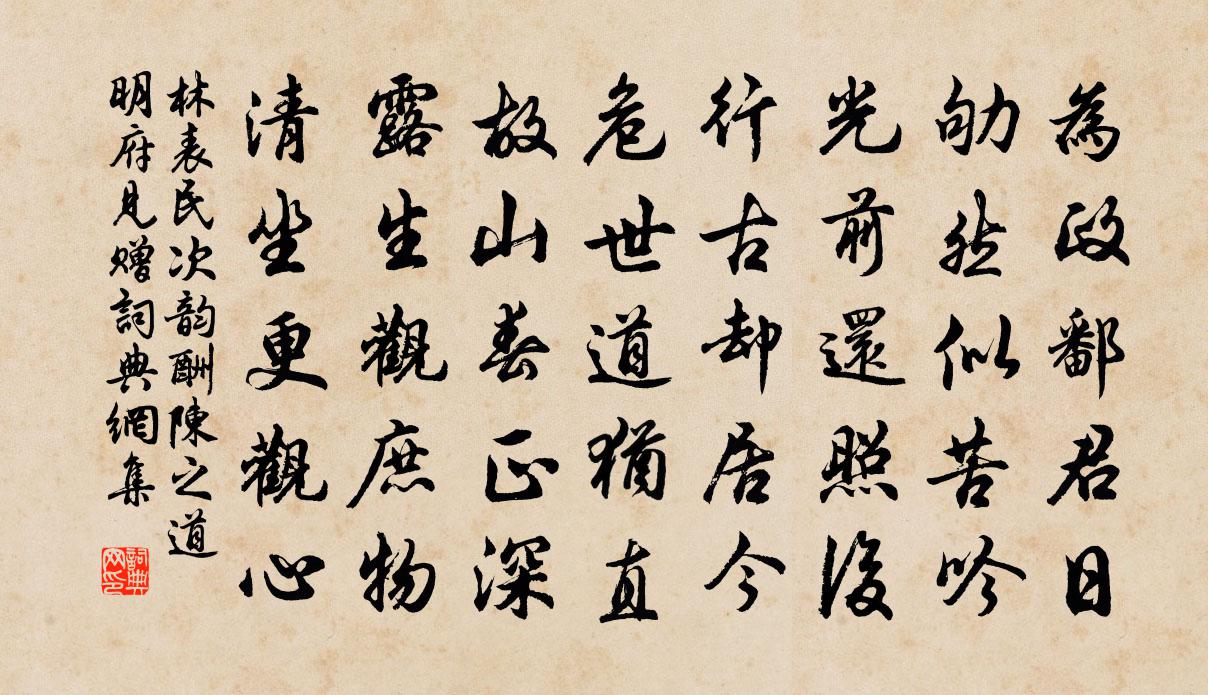 為政鄱君日
劬然似苦吟
光前還照後
行古却居今
危世道猶直
故山春正深
露生觀庶物
清坐更觀心
林表民次韵酬陳之道
明府見贈詞典網集
詞典
网印